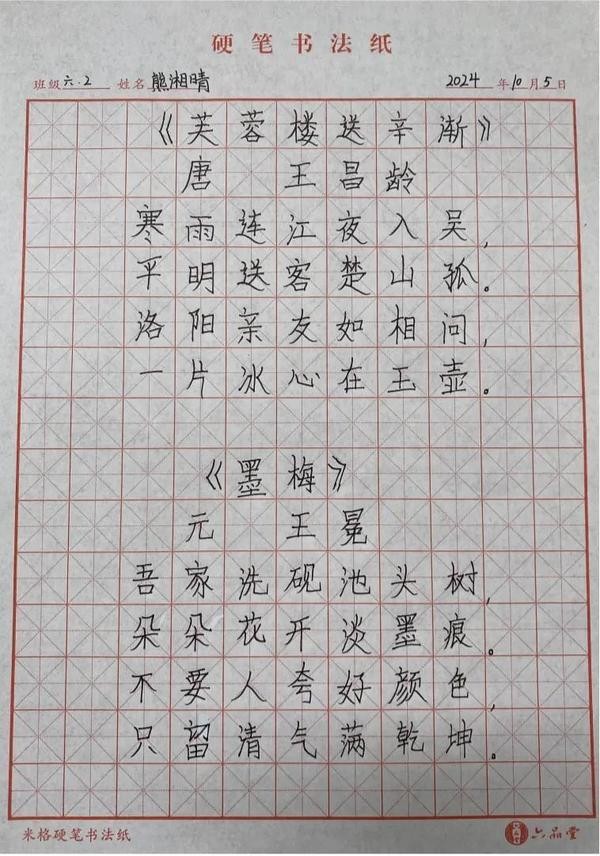 硬笔书法纸
班级 六.2 姓名 熊湘晴 2024 年 10 月 5 日
《芙蓉楼送辛渐》
唐 王昌龄
寒雨连江夜入吴,
平明送客楚山孤。
洛阳亲友如相问,
一片冰心在玉壶。
《墨梅》
元 王冕
吾家洗砚池头树,
朵朵花开淡墨痕。
不要人夸好颜色,
只留清气满乾坤。
米格硬笔书法纸 六品堂